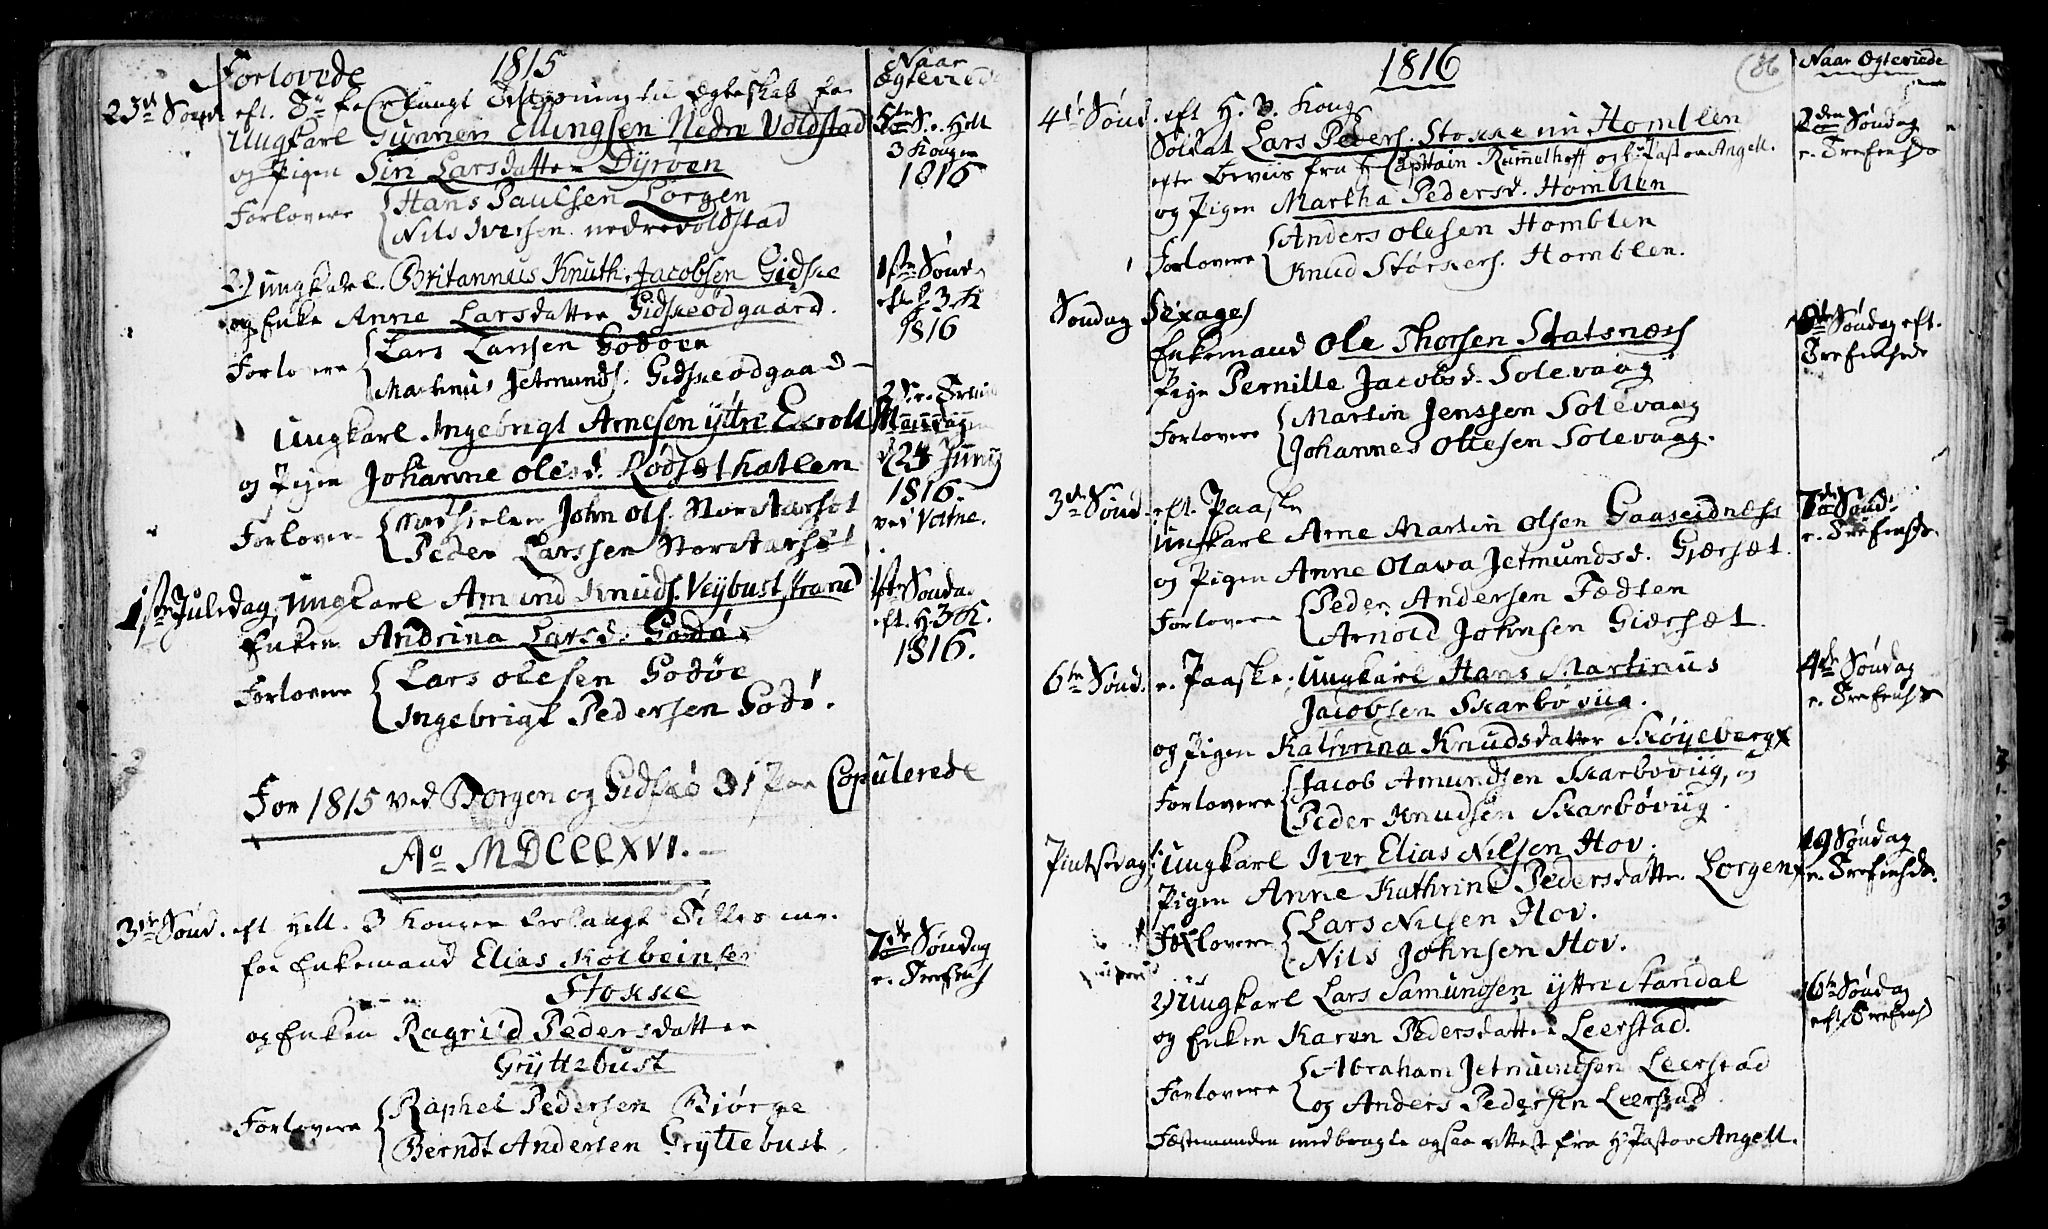 Forlovede 1815 Naar Ægteviede
23de Sønd. eft. Tr. forlangt Tillysning til Ægteskab for
Ungkarl Gunner Ellingsen Nedre Voldstad
5te S. e. Hell 3 Konger 1816
og Pigen Siri Larsdatter Dyrøen
Forlovere Hans Paulsen Lorgen
Nils Iversen nedrevoldstad
2) Ungkarl Britannus Knuth Jacobsen Gidske
1ste Sønd. eft. H 3 K 1816
og Enke Anne Larsdatter Gidskeødgaard.
Forlovere Lars Larssen Godøen
Martinus Jetmunds. Gidskeødgaard
Ungkarl Ingebrigt Arnesen yttre Ekrold
2 S. e.
Mandag
d 24 Junij 1816 ved Vatne.
og Pigen Johanne Olesd. Rødsethatlen
Forlovere John Ols. Storetarset
Peder Larssen Storetarset
1ste Juledag, Ungkarl Amund Knuds. Veybuststrand
1ste Søndag eft. H. 3 K. 1816.
Enken Andrina Larsd. Godø
Forlovere Lars Olesen Godøe
Ingebrigt Pedersen Godø.
For 1815 ved Borgen og Gidskø 31 Par Copulerede
Ao MDCCCXVI.
3de Sønd. eft Hell. 3 Konger forlangt
7de Søndag e. Trefensh
for Enkemand Elias Kolbeinsen
Stokke
og Enken Ragnild Pedersdatter
Gryttebust
Forlovere Raphel Pedersen Biørge
Berndt Andersen Gryttebust
1816 86 Naar Ægteviede
4de Sønd. eft H. 3. Kong
2den Søndag e. Trefensh
Soldat Lars Peders. Stokke nu Homblen
efter Beviis fra H. Captain Rumelhoff og Hr Pastor Angell.
og Pigen Martha Pedersd. Homblen
Forlovere Anders Olesen Homblen
Knud Størkers. Homblen.
Søndag Sexages
Søndag eft. Trefensh
Enkemand Ole Thorsen Statsnæss
Pige Pernille Jacobsd. Solevaag
Forlovere Martin Jenssen Solevaag
Johannes Ollesen Solevaag.
3de Sønd. eft. Paaske
7de Sønd. e. Trefensh.
Ungkarl Arne Martin Olsen Gaaseidnæss
og Pigen Anne Olava Jetmundsd. Giærset.
Forlovere Peder Andersen Fedten
Arnold Johnsen Giærset.
6te Sønd. e. Paaske. Ungkarl Hans Martinus
4de Søndag e. Trefensh
Jacobsen Skarbøviig.
og Pigen Kathrina Knudsdatter Skøyeberg
Forlovere Jacob Amundsen Skarbøviig, og
Peder Knudsen Skarbøviig.
Pintsedag: Ungkarl Iver Elias Nilsen Hov.
19 Søndag e. Trefensh.
Pigen Anne Kathrine Pedersdatter Lorgen
Forlovere Lars Nilsen Hov.
Nils Johnsen Hov.
2) Ungkarl Lars Samundsen yttre Standal
6te Søndag eft. Trefensh
og Enken Karen Pedersdatter Leerstad.
Forlovere Abraham Jetmundsen Leerstad
og Anders Pedersen Leerstad
Festemanden medbragte ogsaa Attest fra Hr Pastor Angell.